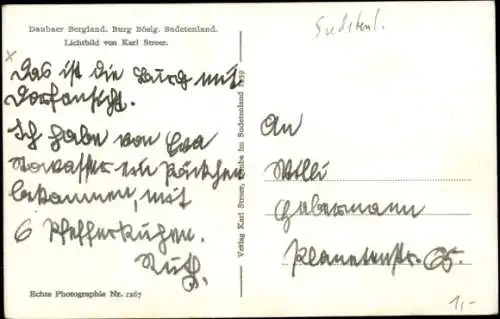 Daubaer Bergland. Burg Bösig. Sudetenland.
Lichtbild von Karl Streer.
Sudetenl.
Das ist die Burg mit
Dorfansicht.
Ich habe von Eva
ein Päckchen
bekommen, mit
6 Pfefferkuchen.
Ruth.
Verlag Karl Streer, Dauba im Sudetenland 1939
An
Willi
Habermann
Planetenstr. 65.
Echte Photographie Nr. 1267
1,-